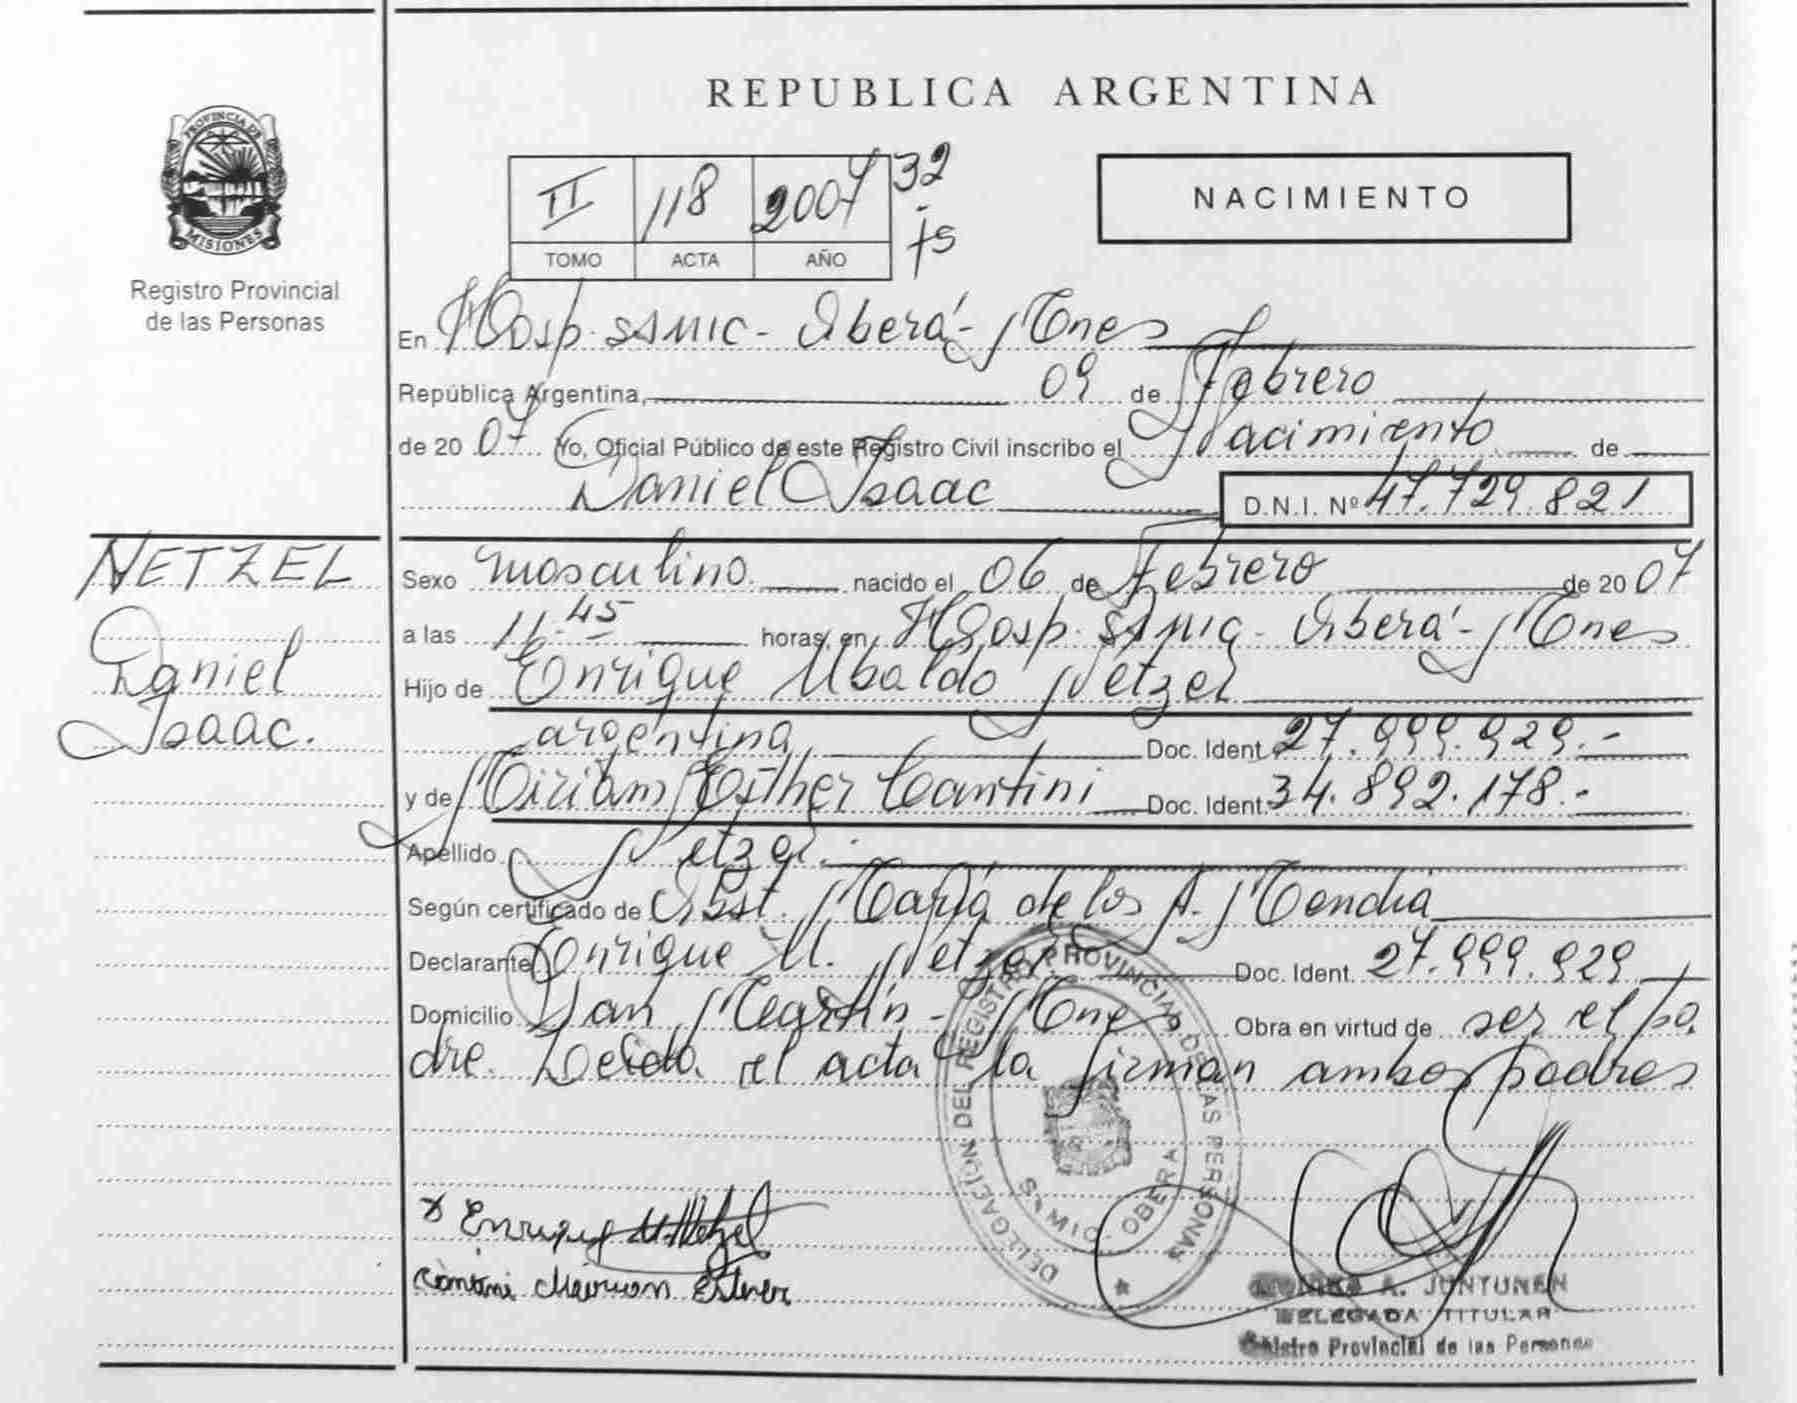 REPUBLICA ARGENTINA
PROVINCIA DE
MISIONES
Registro Provincial
de las Personas
II 118 2007 32
TOMO ACTA AÑO
NACIMIENTO
En Hosp. SAMIC - Oberá - Mnes
República Argentina, 09 de Febrero
de 20 07 Yo, Oficial Público de este Registro Civil inscribo el Nacimiento de
Daniel Isaac D.N.I. Nº 47.729.821
NETZEL
Daniel
Isaac.
Sexo masculino nacido el 06 de Febrero de 20 07
a las 11.45 horas, en Hosp. SAMIC - Oberá - Mnes
Hijo de Enrique Ubaldo Netzel
argentina Doc. Ident. 27.999.929.-
y de Miriam Esther Cantini Doc. Ident. 34.892.178.-
Apellido Netzel.
Según certificado de Obst. María de los A.
Declarante Enrique U. Netzel Doc. Ident. 27.999.929
Domicilio San Martín - Mnes Obra en virtud de ser el pa
dre. Leída el acta la firman ambos padres
DELEGACIÓN DEL REGISTRO PROVINCIAL DE LAS PERSONAS
OBERA
Enrique U. Netzel
MONIKA A. JUNTUNEN
DELEGADA TITULAR
Registro Provincial de las Personas